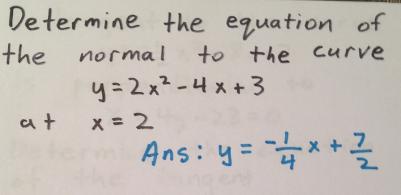 Determine the equation of
the normal to the curve
y = 2x² - 4x + 3
at x = 2
Ans: y = -1/4 x + 7/2